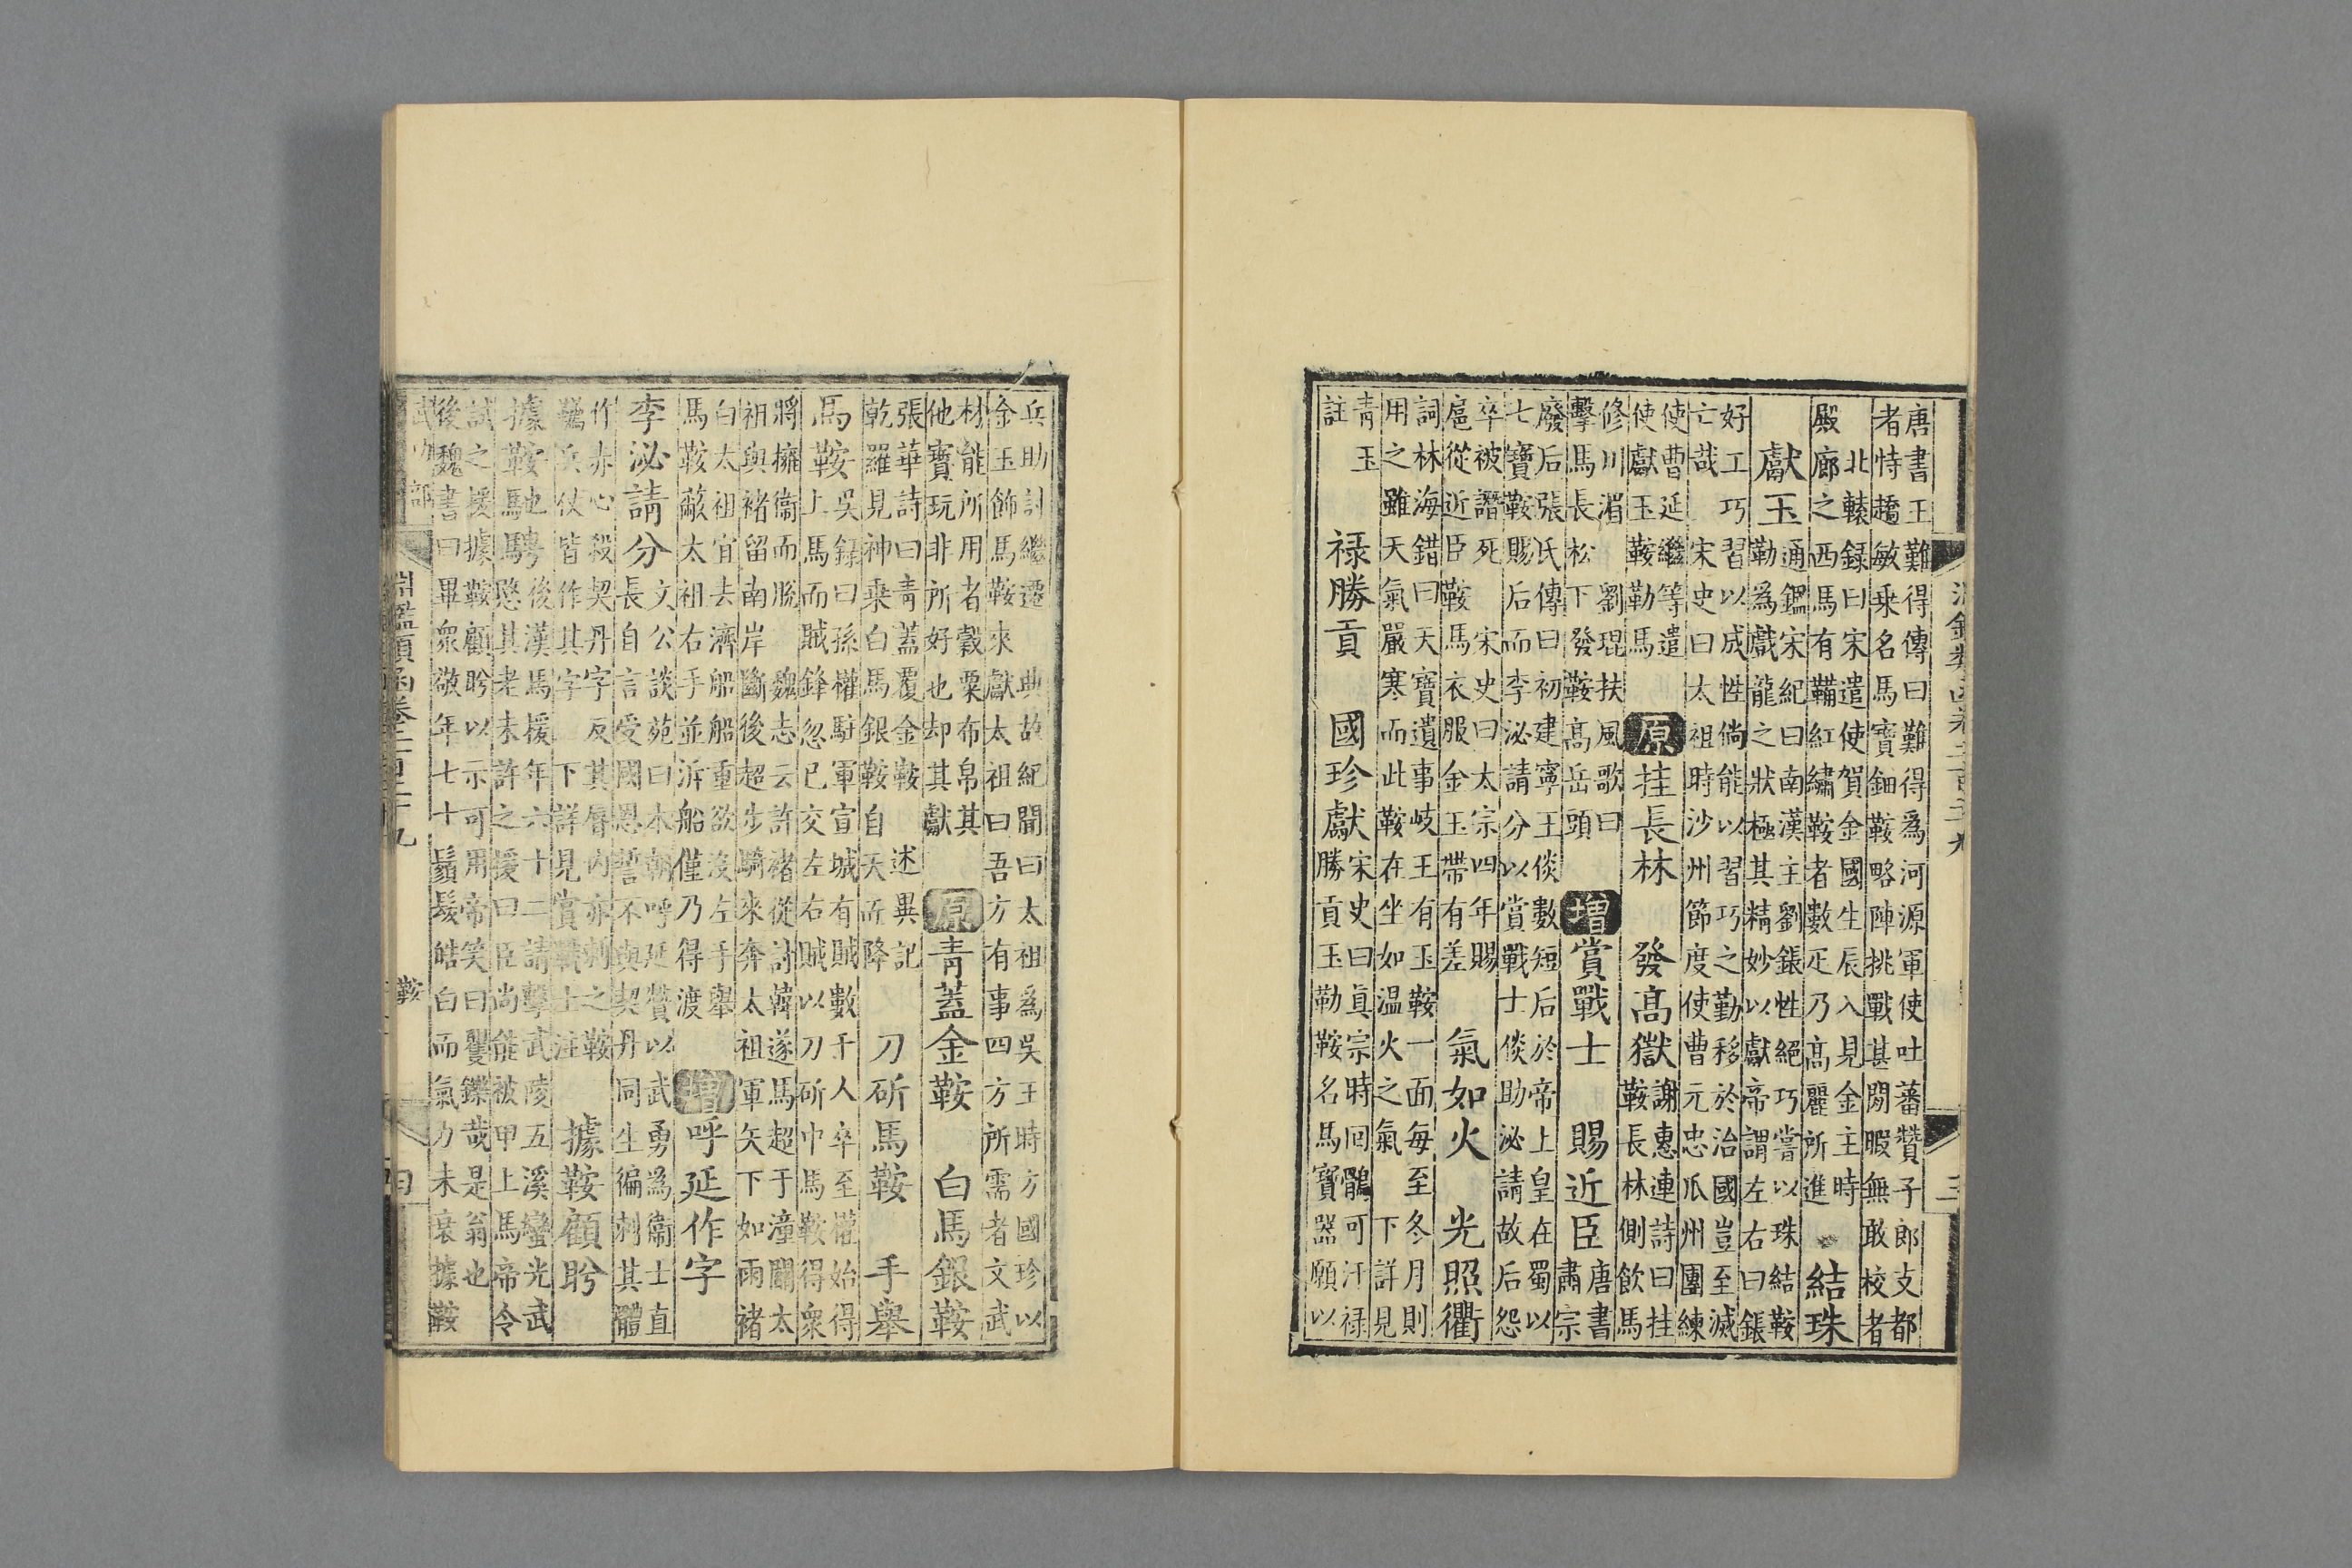 唐書王難得傳曰難得爲河源軍使吐蕃贊子郎支都
者恃趫敏乘名馬寶鈿鞍略陣挑戰甚閑暇無敢校者
北轅録曰宋遣使賀金國生辰入見金主時
殿廊之西馬有鞲紅繡鞍者數疋乃高麗所進
結珠
獻玉
通鑑宋紀曰南漢主劉鋹性絕巧嘗以珠結鞍
勒爲戲龍之狀極其精妙以獻帝謂左右曰鋹
好工巧習以成性倘能以習巧之勤移於治國豈至滅
亡哉 宋史曰太祖時沙州節度使曹元忠瓜州團練
使曹延繼等遣
使獻玉鞍勒馬
原 挂長林 發高獄
謝惠連詩曰挂
鞍長林側飲馬
修川湄 劉琨扶風歌曰
擊馬長松下發鞍高岳頭
增 賞戰士 賜近臣
唐書
肅宗
廢后張氏傳曰初建寧王倓數短后於帝上皇在蜀以
七寶鞍賜后而李泌請分以賞戰士倓助泌請故后怨
卒被譖死 宋史曰太宗四年賜
扈從近臣鞍馬衣服金玉帶有差
氣如火 光照衢
詞林海錯曰天寶遺事岐王有玉鞍一面每至冬月則
用之雖天氣嚴寒而此鞍在坐如温火之氣 下詳見
青玉
註
祿勝貢 國珍獻
宋史曰眞宗時回鶻可汗祿
勝貢玉勒鞍名馬寶器願以
三
兵助討繼遷 典故紀聞曰太祖爲吳王時方國珍以
金玉飾馬鞍來獻太祖曰吾方有事四方所需者文武
材能所用者穀粟布帛其
他寶玩非所好也却其獻
原 青蓋金鞍 白馬銀鞍
張華詩曰青蓋覆金鞍 述異記
乾羅見神乘白馬銀鞍自天而降
刀斫馬鞍 手舉
馬鞍
吳録曰孫權駐軍宣城有賊數千人卒至權始得
上馬而賊鋒忽已交左右賊以刀斫中馬鞍得衆
將擁衞而脫 魏志云許褚從討韓遂馬超于潼關太
祖與褚留南岸斷後超步騎來奔太祖軍矢下如雨褚
白太祖宜去濟船船重欲没左手舉
馬鞍蔽太祖右手並泝船僅乃得渡
增 呼延作字
李泌請分
文公談苑曰本朝呼延贊以武勇爲衞士直
長自言受國恩誓不與契丹同生徧刺其體
作赤心殺契丹字反其脣内亦刺之鞍
韉兵仗皆作其字 下詳見賞戰士注
據鞍顧盼
據鞍馳騁
後漢馬援年六十二請擊武陵五溪蠻光武
愍其老未許之援曰臣尚能被甲上馬帝令
試之援據鞍顧盼以示可用帝笑曰矍鑠哉是翁也
後魏書曰畢衆敬年七十鬚髮皓白而氣力未衰據鞍
武功部
淵鑑類函卷二百二十九 鞍 四